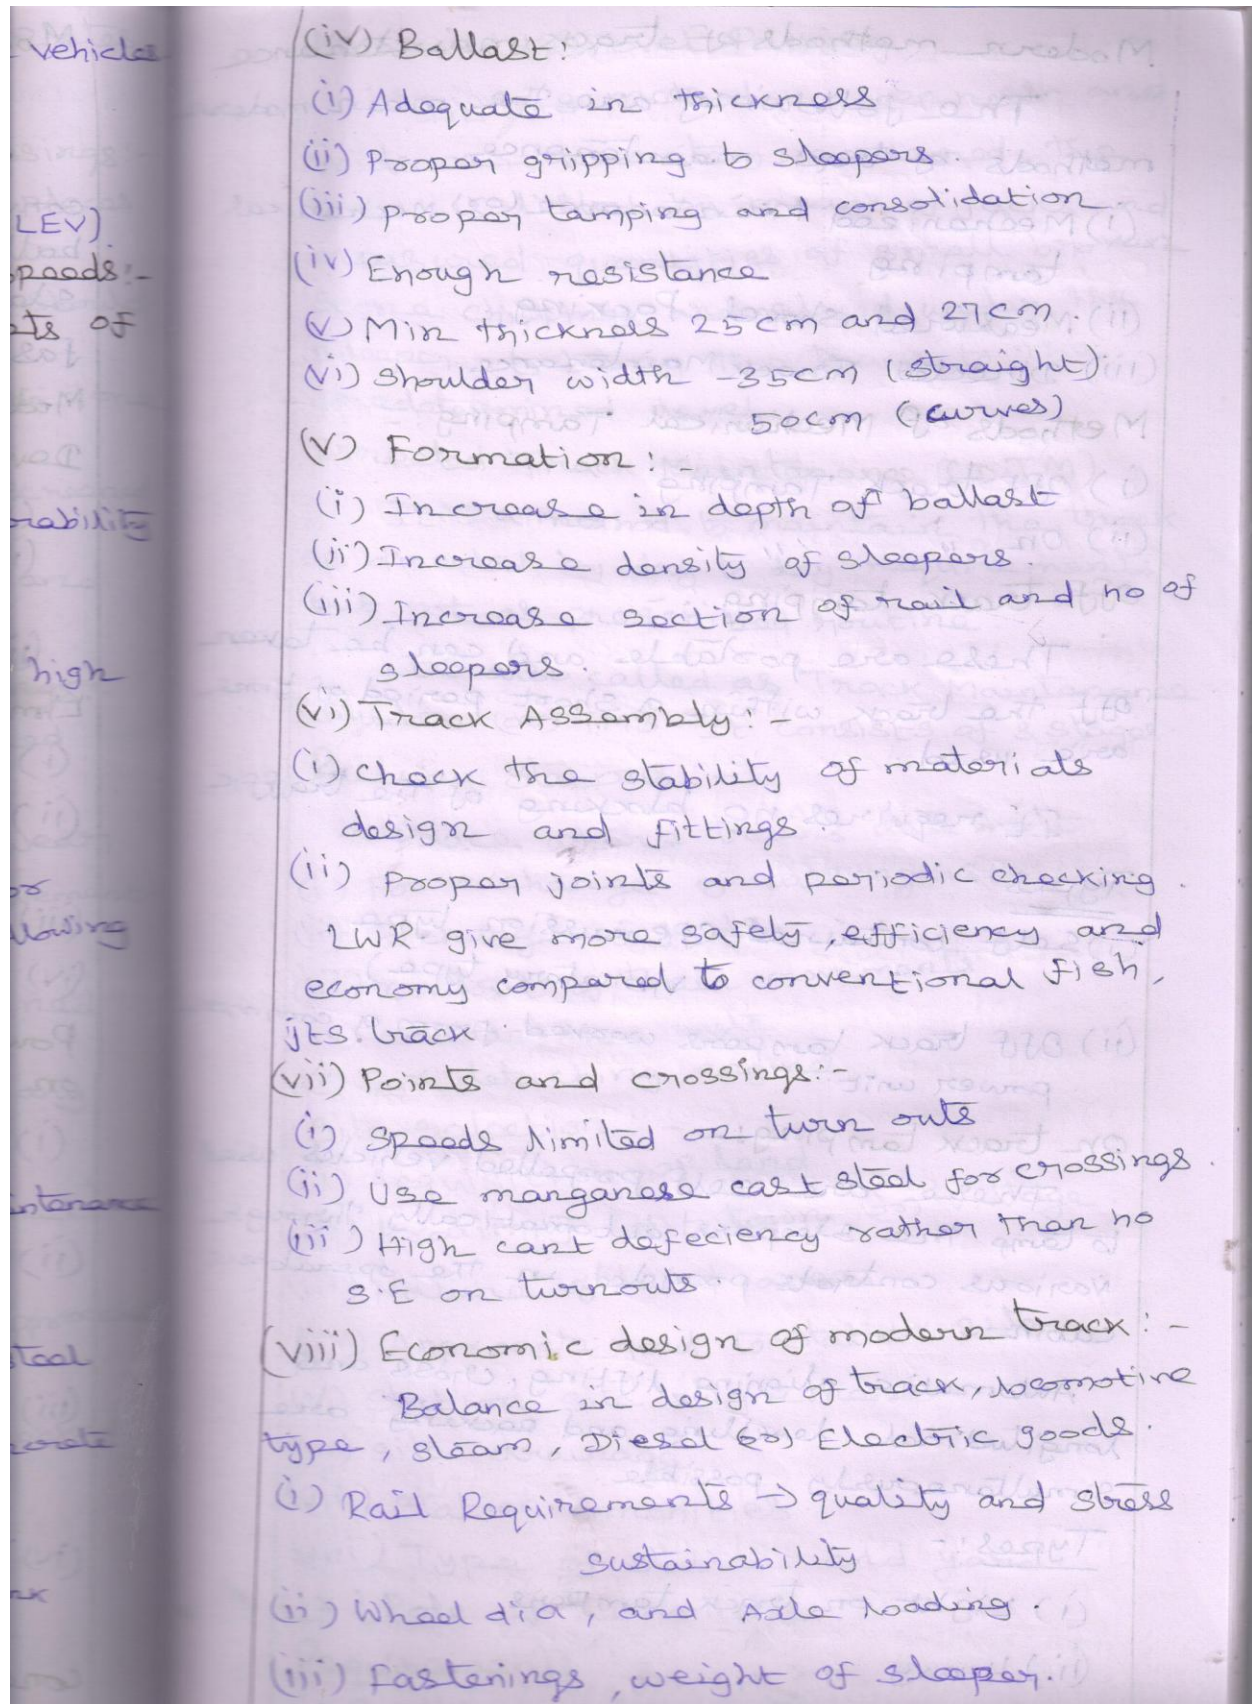 vehicles
LEV)
peeds:-
ts of
rability
high
or
llowing
intenance
steel
crete
(iv) Ballast:
(i) Adequate in thickness
(ii) Proper gripping to sleepers.
(iii) proper tamping and consolidation.
(iv) Enough resistance
(v) Min thickness 25cm and 27cm.
(vi) shoulder width - 35cm (straight)
50cm (curves)
(v) Formation: -
(i) Increase in depth of ballast
(ii) Increase density of sleepers.
(iii) Increase section of rail and no of
sleepers.
(vi) Track Assembly: -
(i) check the stability of materials
design and fittings.
(ii) proper joints and periodic checking.
LWR give more safety, efficiency and
economy compared to conventional fish,
jts. track.
(vii) Points and crossings:-
(i) speeds limited on turn outs
(ii) Use manganese cast steel for crossings.
(iii) High cant defeciency rather than no
S.E on turnouts.
(viii) Economic design of modern track: -
Balance in design of track, locomotive
type, steam, Diesel (or) Electric goods.
(i) Rail Requirements → quality and stress
sustainability
(ii) Wheel dia, and Axle loading.
(iii) Fastenings, weight of sleeper.